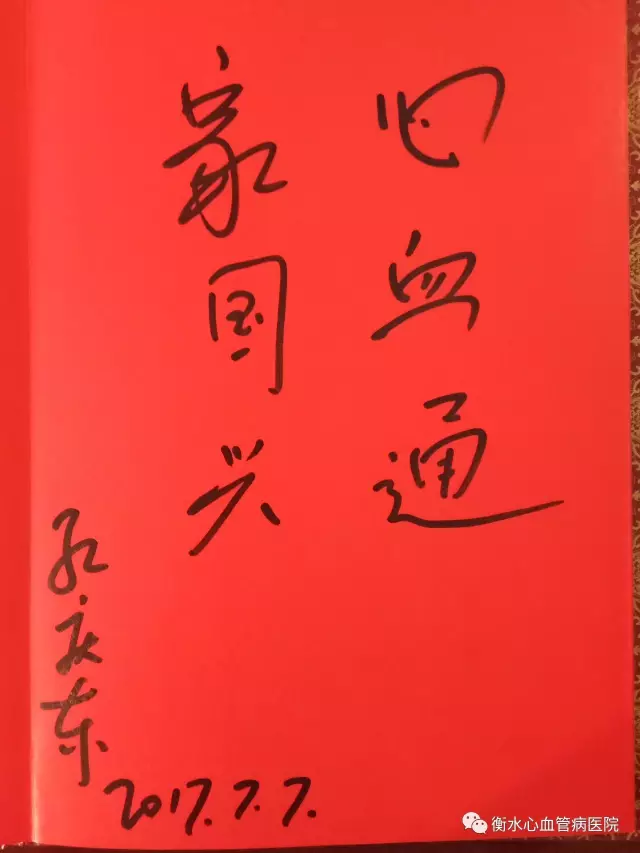 心血通
家国兴
孔庆东
2017.7.7.
衡水心血管病医院